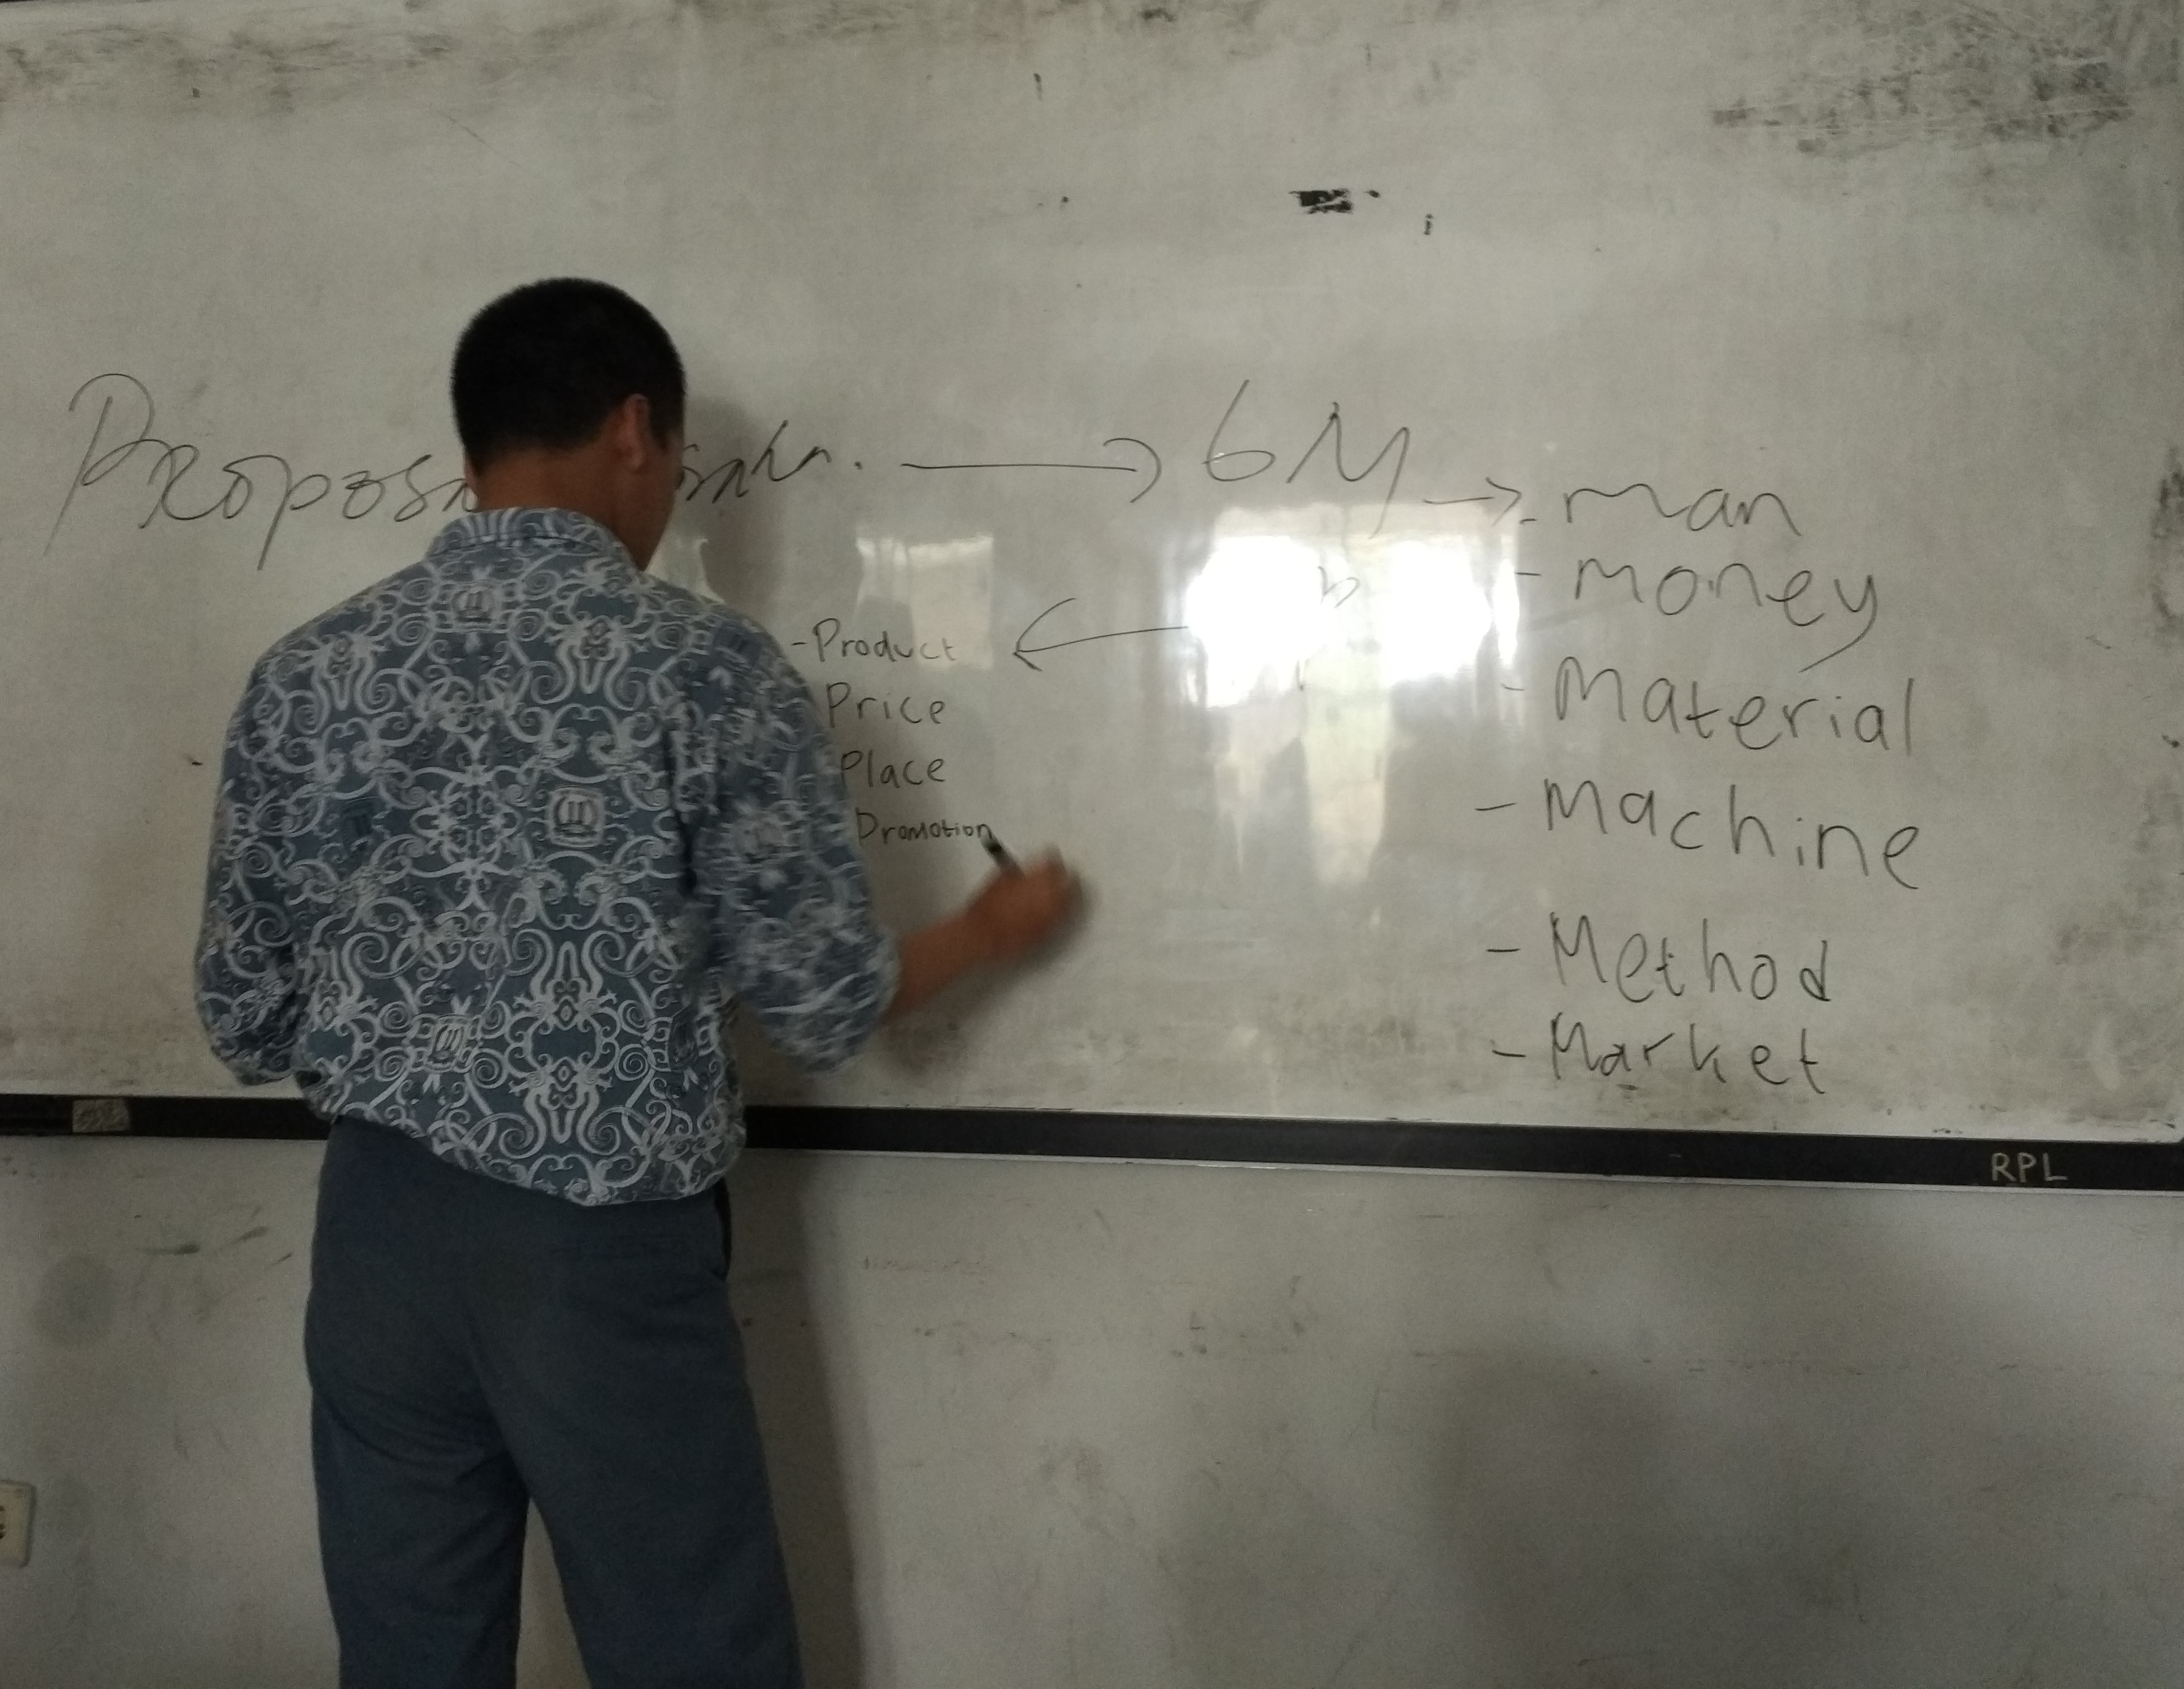 6M
- man
- money
- Material
- Machine
- Method
- Market
- Product
Price
Place
Promotion
RPL